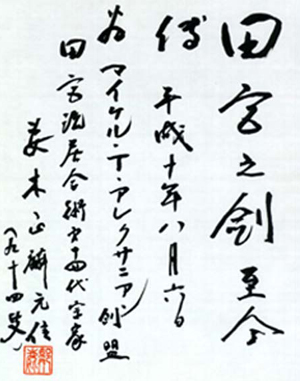 田宮之劍至今
傳 平成十年八月六日
為 マイケル・T・アレクサニアン 剣盟
田宮流居合術第十四代宗家
妻木正麟元信